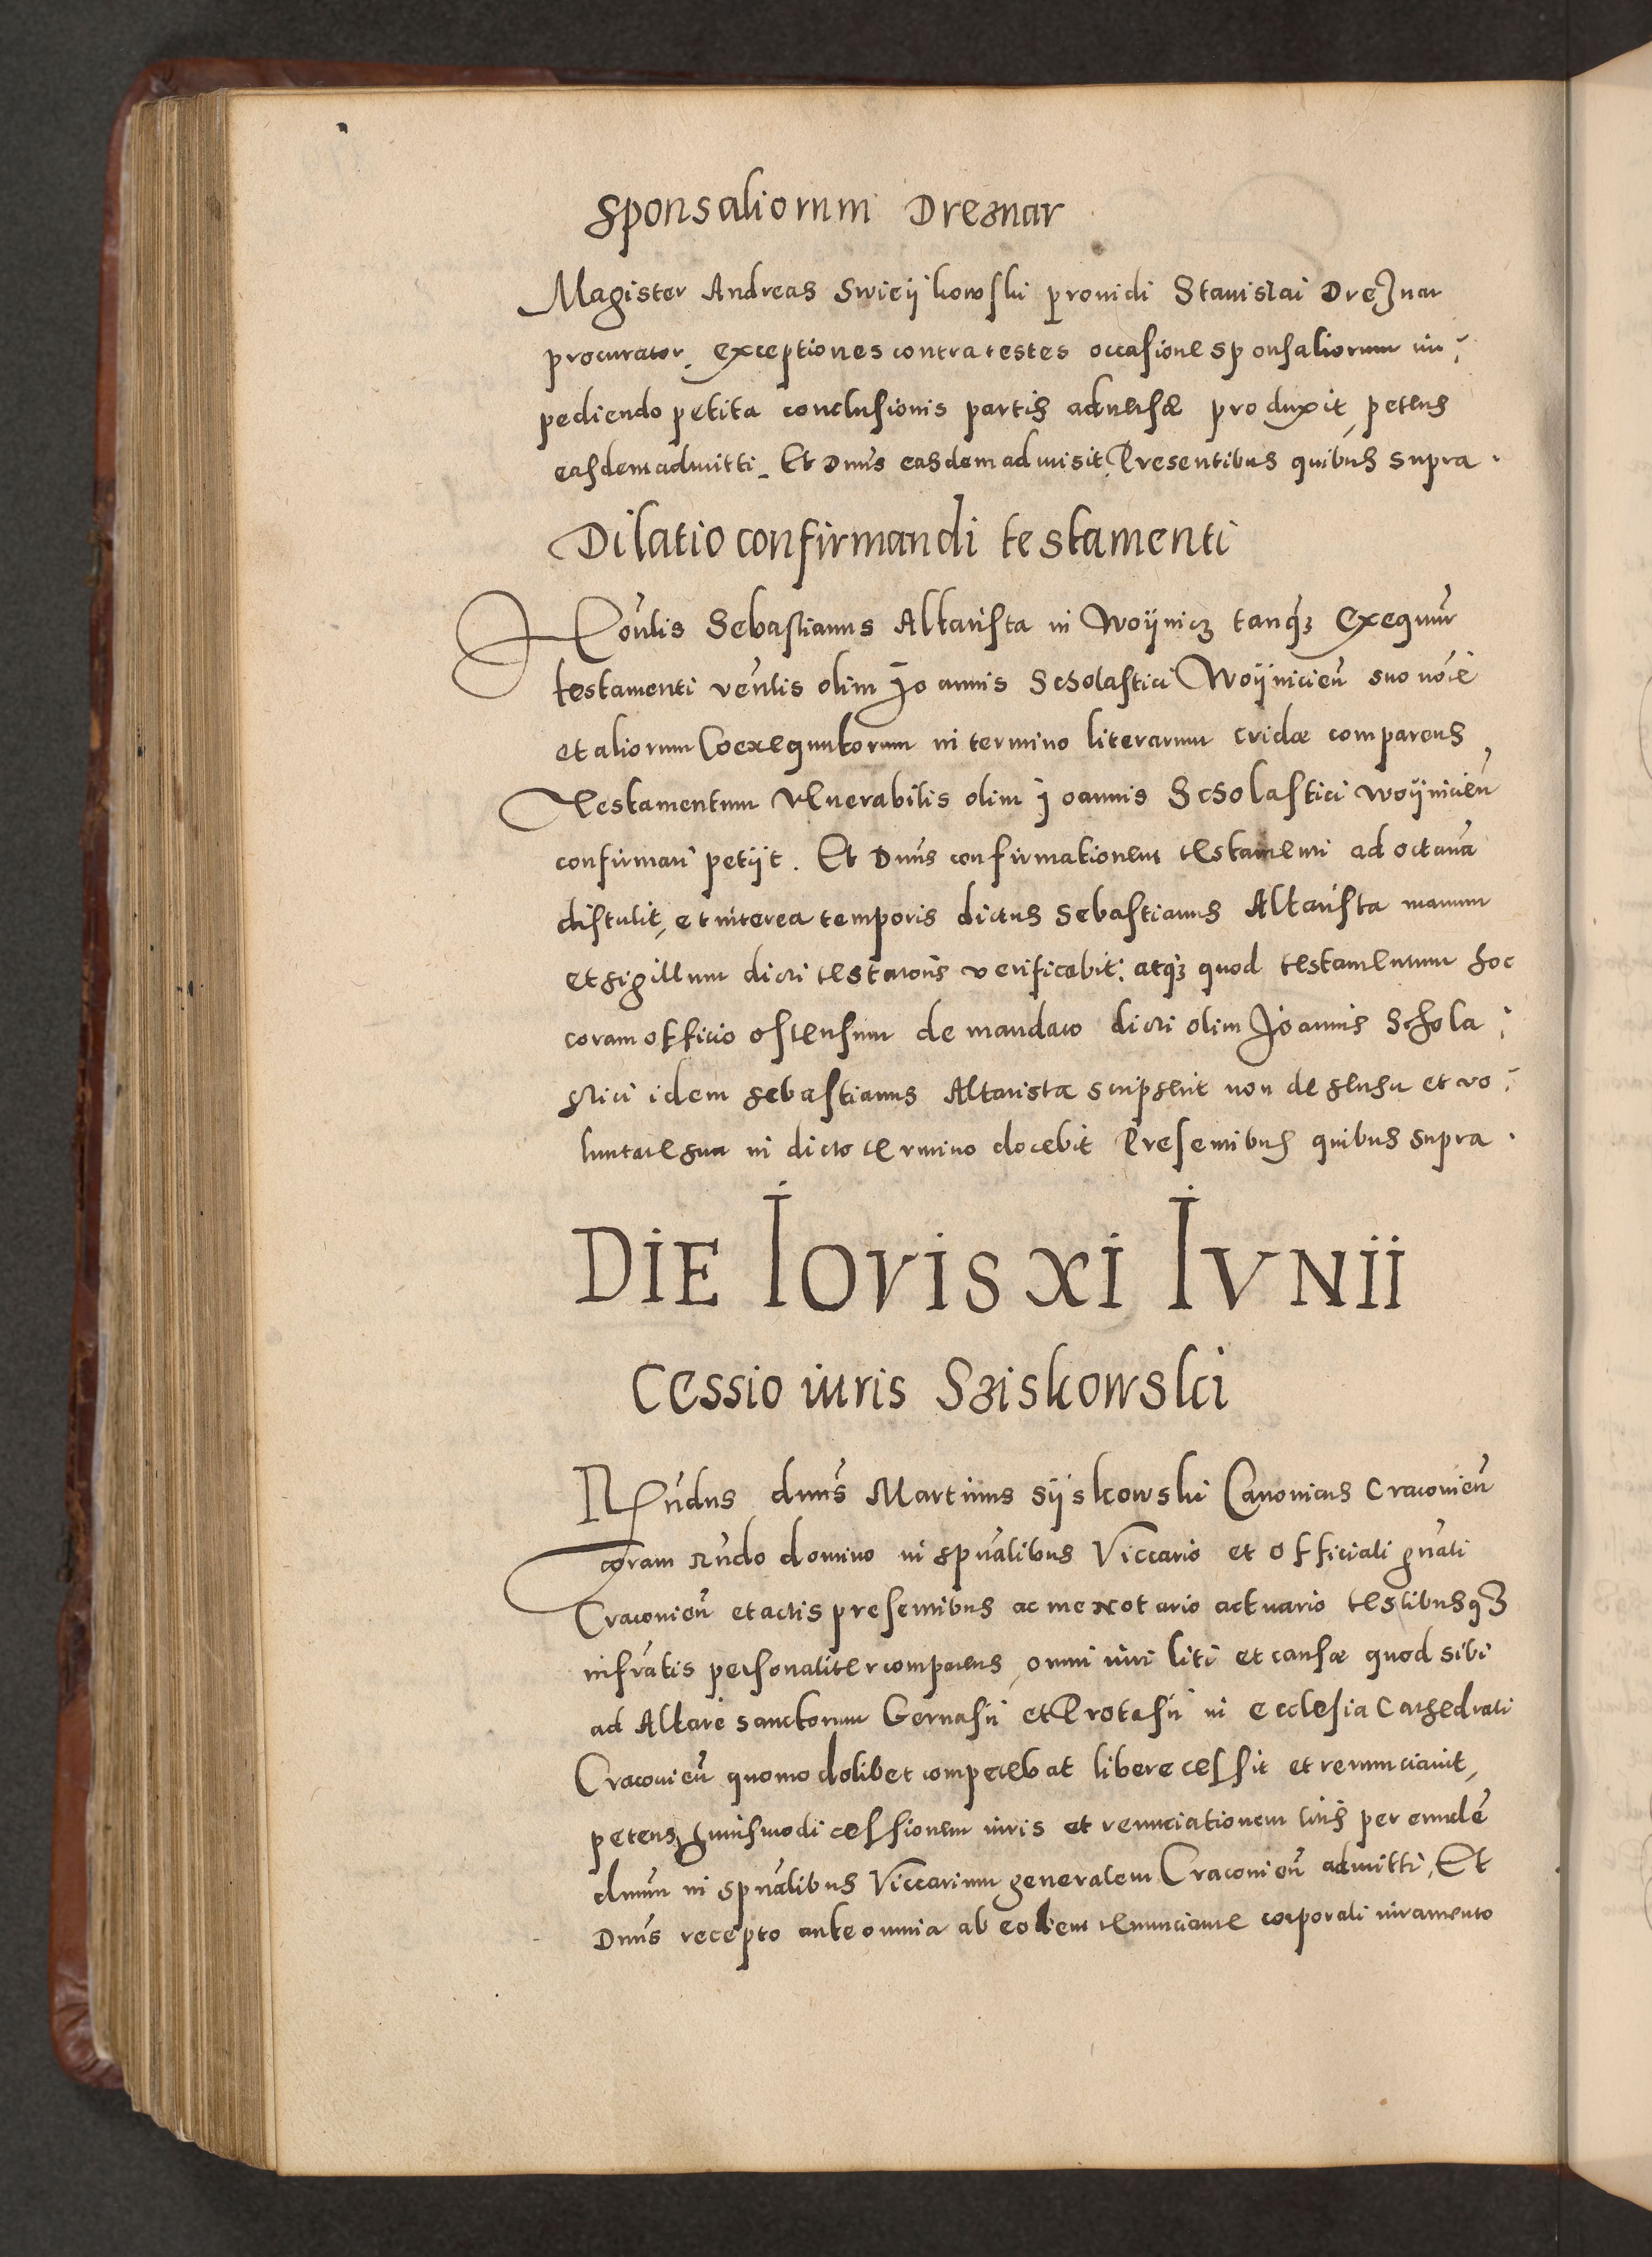 Sponsaliorum Dreznar
Magister Andreas Swieÿkowski prouidi Stanislai Dreznar
procurator. exceptiones contra testes occasione sponsaliorum im
pediendo petita conclusionis partis aduersæ produxit, petens
easdem admitti. Et Dnus easdem admisit. Presentibus quibus supra.
Dilatio confirmandi testamenti
Honlis Sebastianus Altarista in Woÿnicz tanq3 Exequutr
testamenti venlis olim Joannis Scholastici Woÿnicien suo noie
et aliorum Coexequutorum in termino literarum cridæ comparens
Testamentum venerabilis olim Joannis Scholastici Woÿnicien
confirmari petÿt. Et Dnus confirmationem testamenti ad octaua
distulit, et interea temporis dictus Sebastianus Altarista manum
et sigillum dicti testatoris verificabit: atq3 quod testamentum hoc
coram officio ostensum de mandato dicti olim Joannis Schola
stici idem Sebastianus Altarista scripserit non de sensu et vo
luntate sua in dicto termino docebit Presentibus quibus supra.
DIE IOVIS XI IVNII
Cessio iuris Sziskowski
Rndus dnus Martinus Sÿskowski Canonicus Cracouien
coram rndo domino in spualibus Viccario et officiali gnali
Cracouien et actis presentibus ac me Notario actuario testibusq3
infratis personaliter comparens, omni iuri liti et causæ quod sibi
ad Altare sanctorum Geruasii et Protasii in ecclesia Cathedrali
Cracouien quomodolibet competebat libere cessit et renunciauit,
petens huiusmodi cessionem iuris et renuciationem litis per eunde
dnum in spualibus Viccarium generalem Cracouien admitti, Et
Dnus recepto ante omnia ab eodem renunciante corporali iuramento